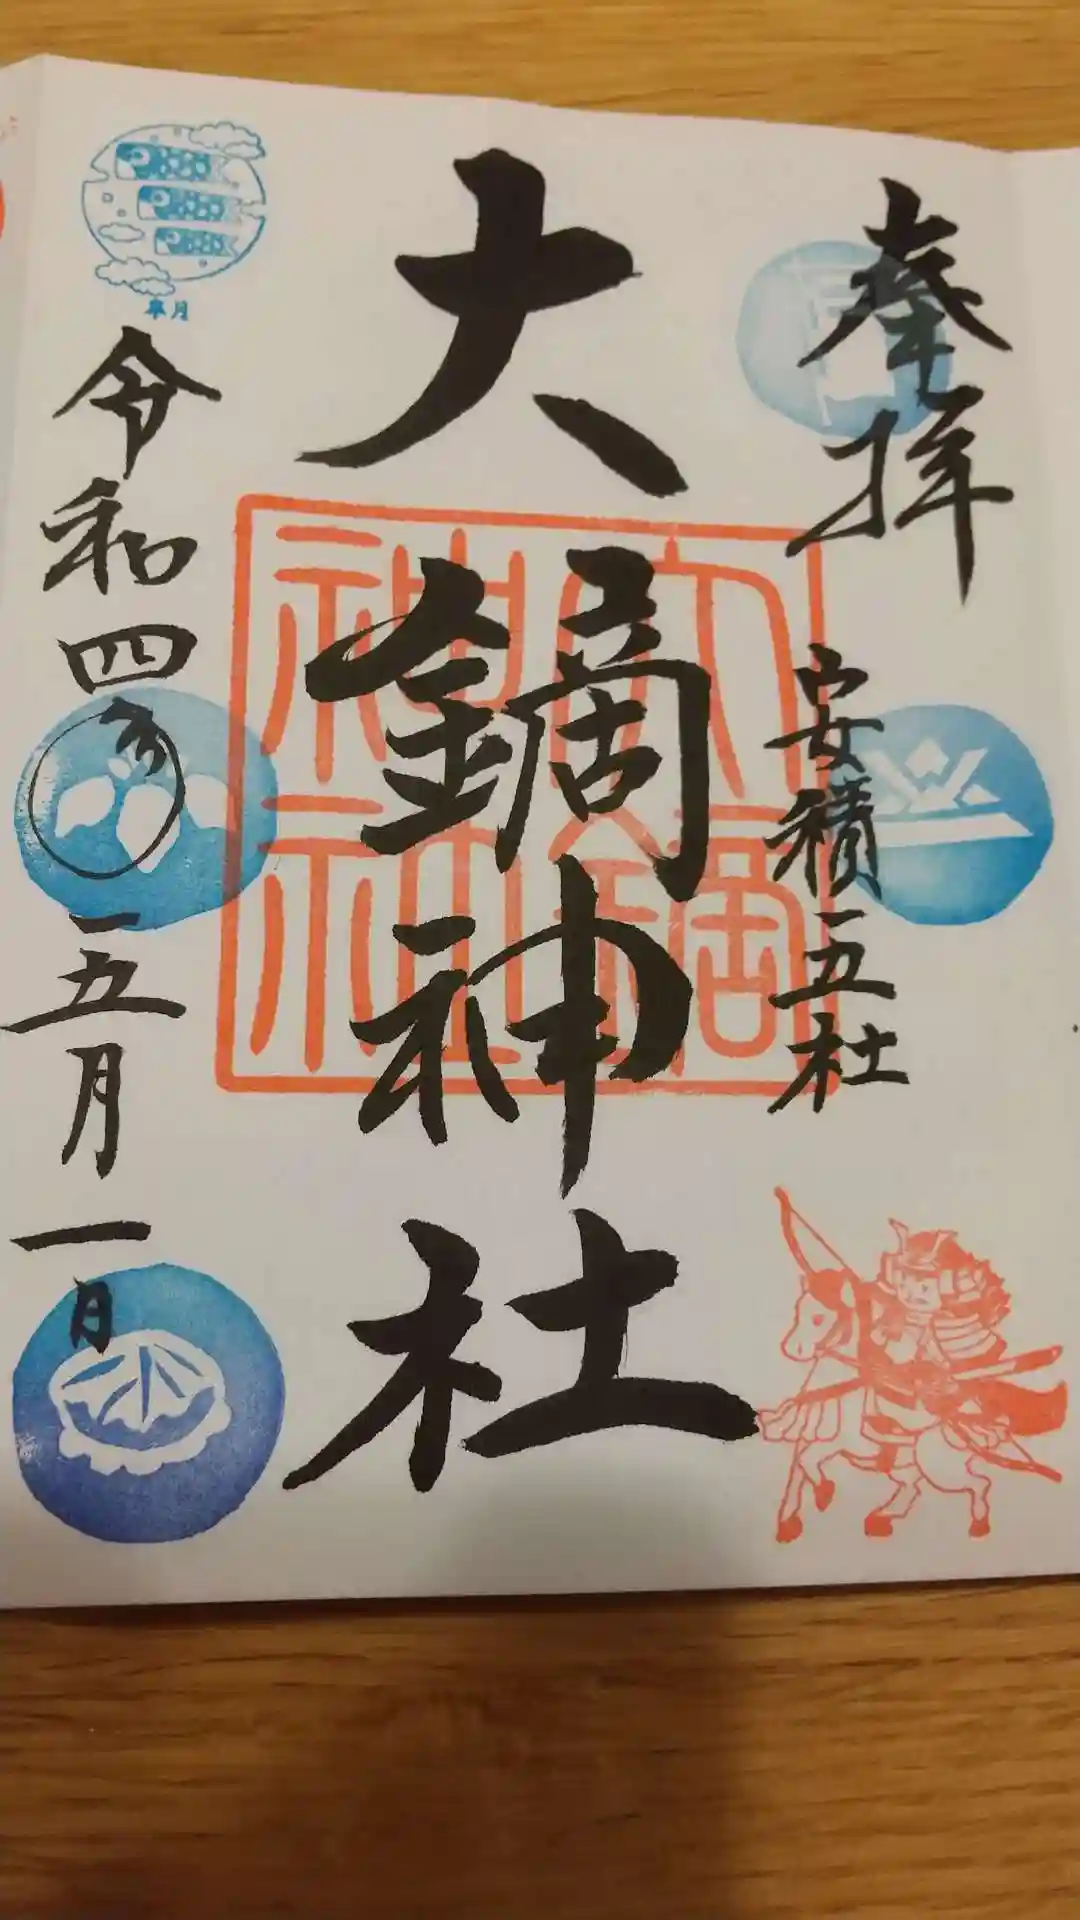 奉拝
安積五社
大鏑神社
大鏑神社
皐月
令和四年五月一日